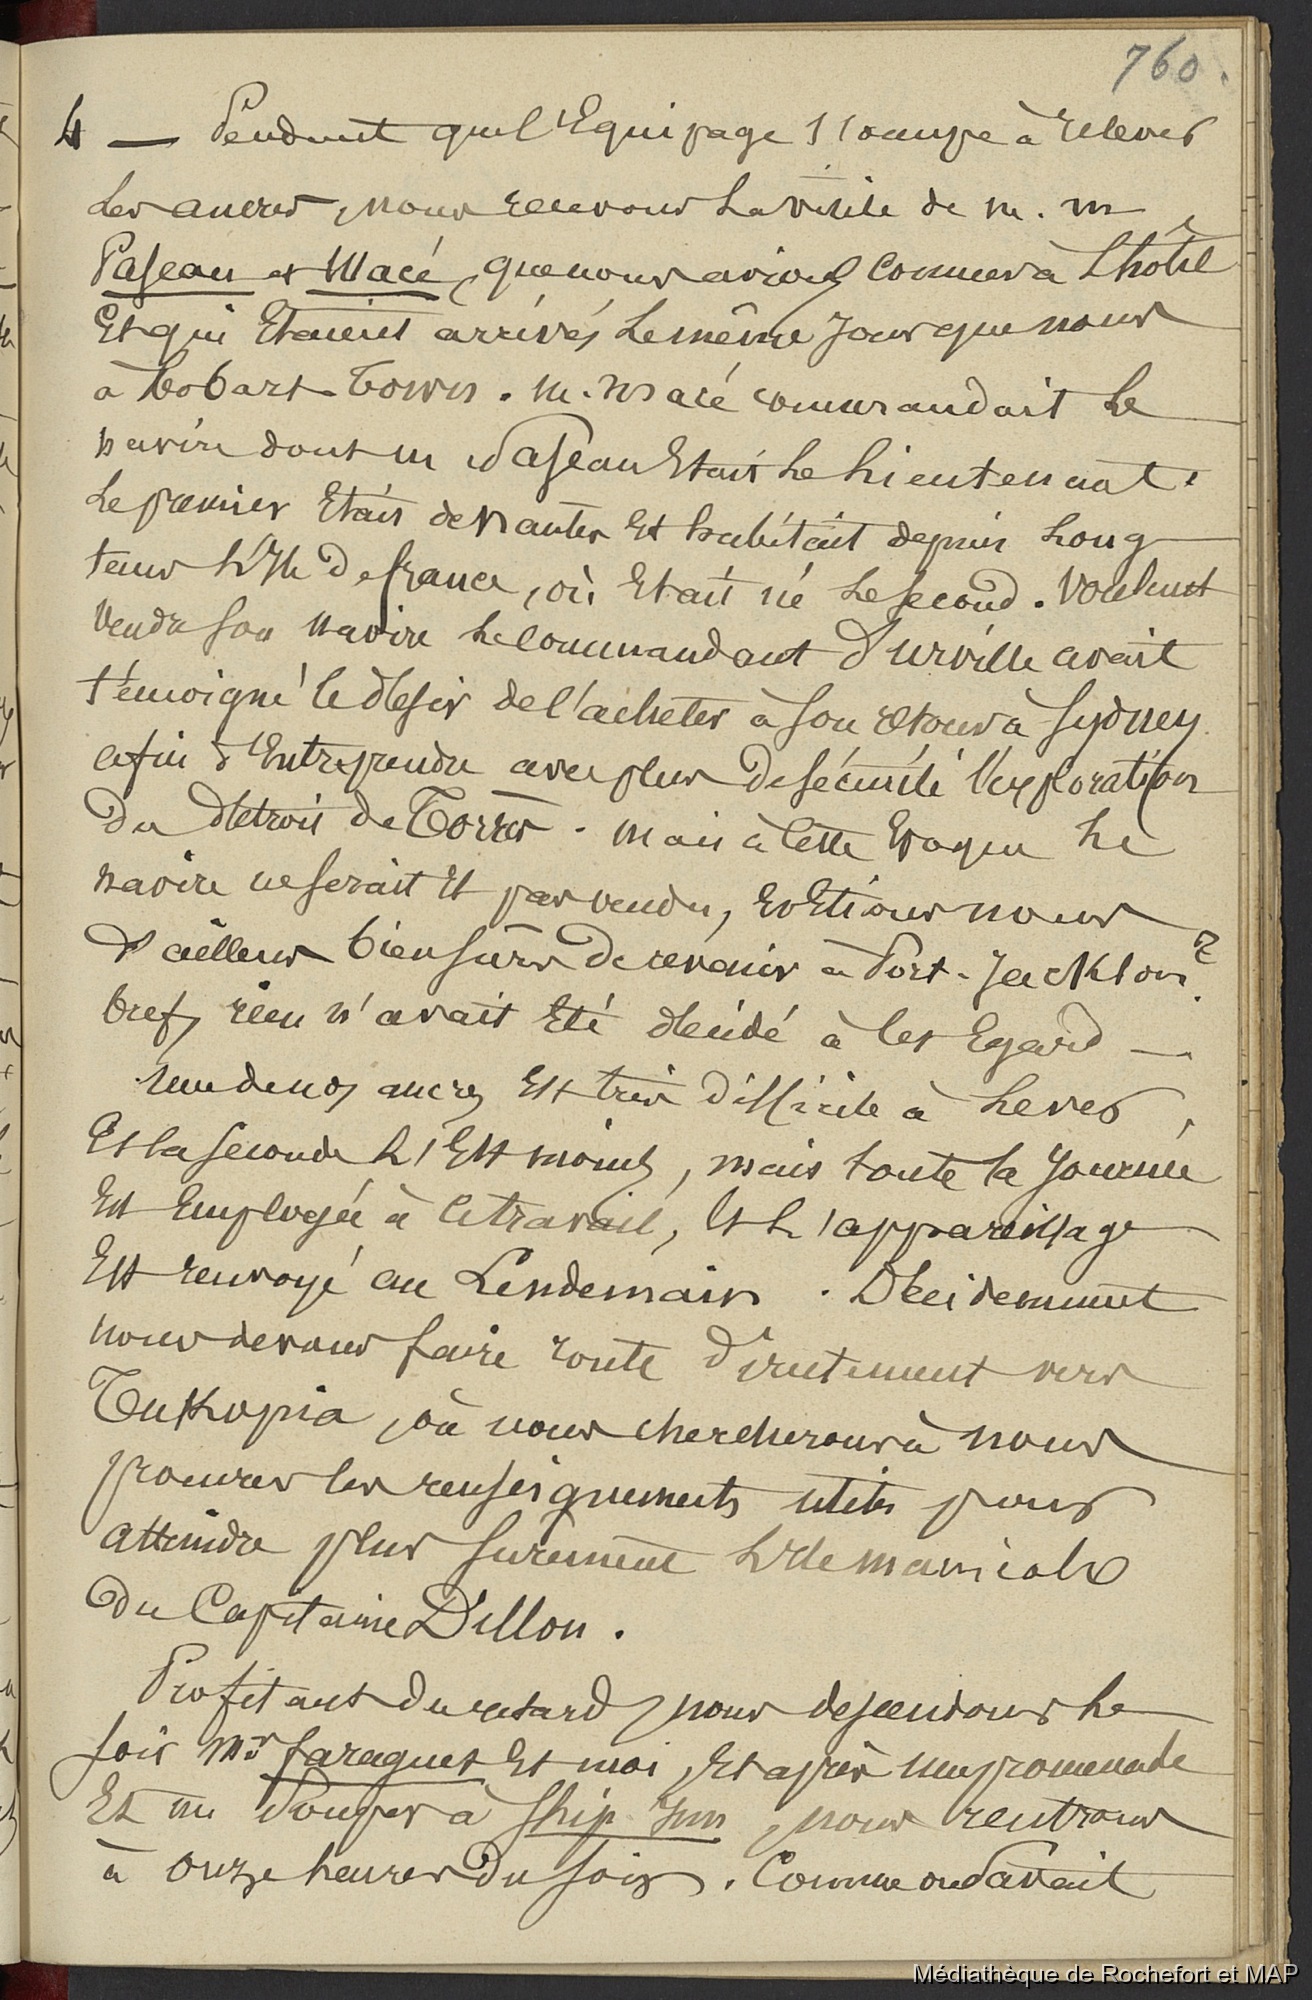 760.
4 — Pendant que l'Equipage s'occupe à relever
les ancres, nous recevons la visite de m. m
Paseau et Macé, que nous avions connus à L'hôtel
Et qui Etaient arrivés le même jour que nous
à hobart-Town. m. Macé commandait le
navire dont m Paseau Etait le Lieutenant.
Le premier Etait de Nantes Et habitait depuis Long
tems L'Ile De france, où Etait né le second. Voulant
vendre son navire le Commandant D'urville avait
témoigné le désir de l'acheter à son retour à Sydney
afin d'Entreprendre avec plus De sécurité l'exploration
Du Détroit de Torrès. mais à cette Epoque le
navire ne serait Il pas vendu, Et Etions nous
D'ailleurs bien sûrs De revenir à Port-Jackson?
bref, rien n'avait Eté décidé à cet Egard —
une de nos ancres Est très difficile à Lever,
Et la seconde L'Est moins, mais toute la journée
Est Employée à ce travail, Et L'appareillage
Est renvoyé au Lendemain. Décidemment
nous devons faire route Directement vers
Tukkopia, où nous chercherons à nous
procurer les renseignements utiles pour
atteindre plus surement L'Ile manicolo
Du Capitaine D'illon.
Profitant Du retard, nous descendons le
soir Mr. faraguet Et moi, Et après une promenade
Et un Souper à Ship Inn, nous rentrons
à onze heures Du soir. Comme on savait
Médiathèque de Rochefort et MAP